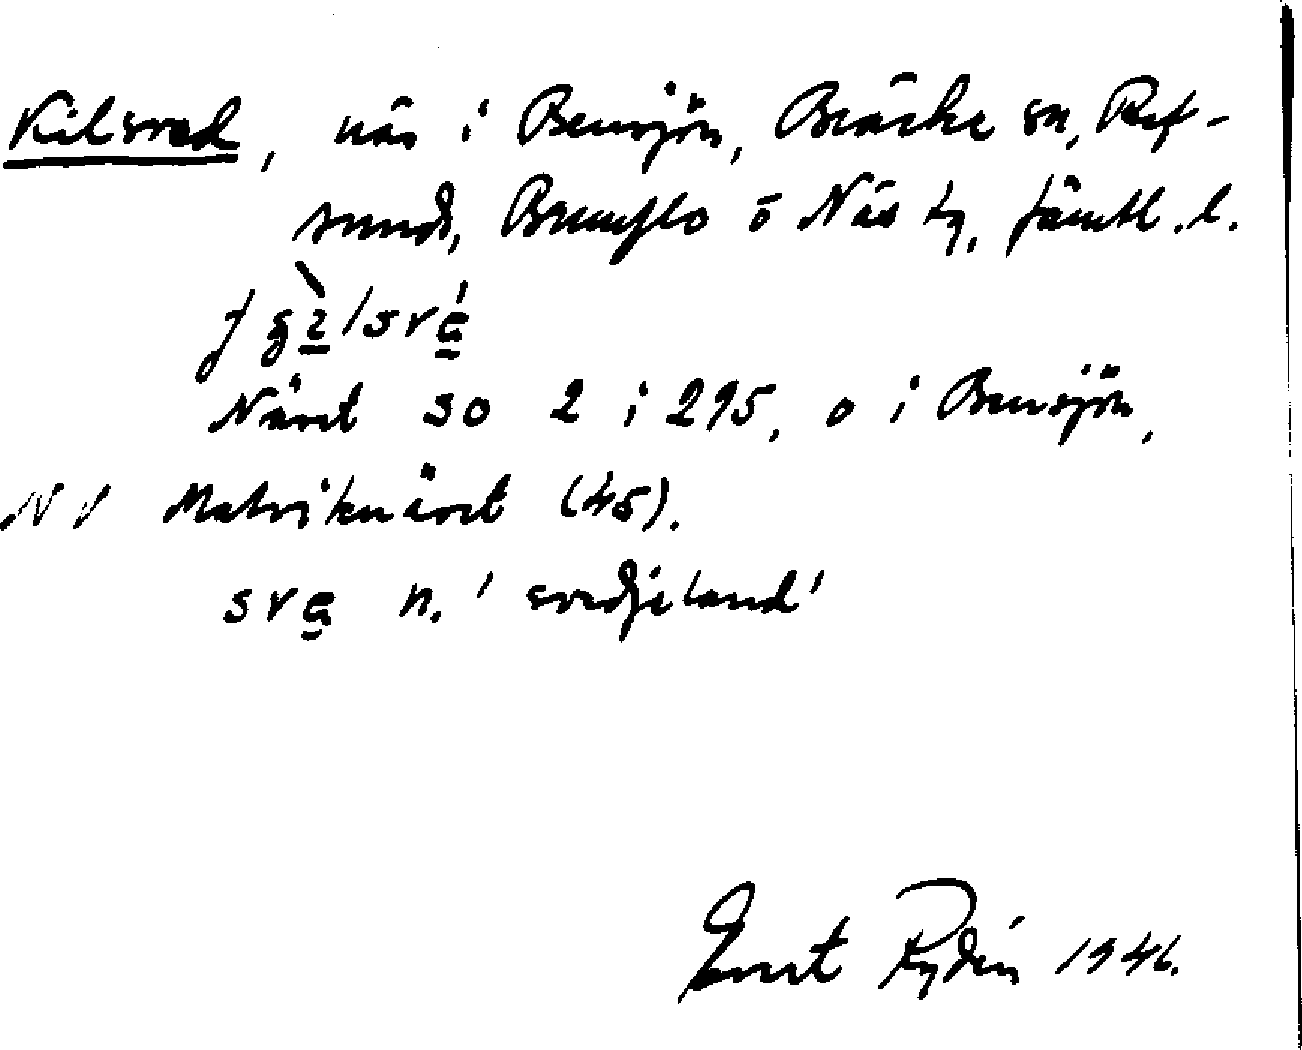 Kilsved, näs i Bensjön, Bräcke sn, Ref-
sund, Brunflo o Näs tg, Jämtl. l.
Näset so 2 i 295, o i Bensjön,
NV Matviknäset (45).
sve n. 'svedjeland'
Ernst Rydén 1946.